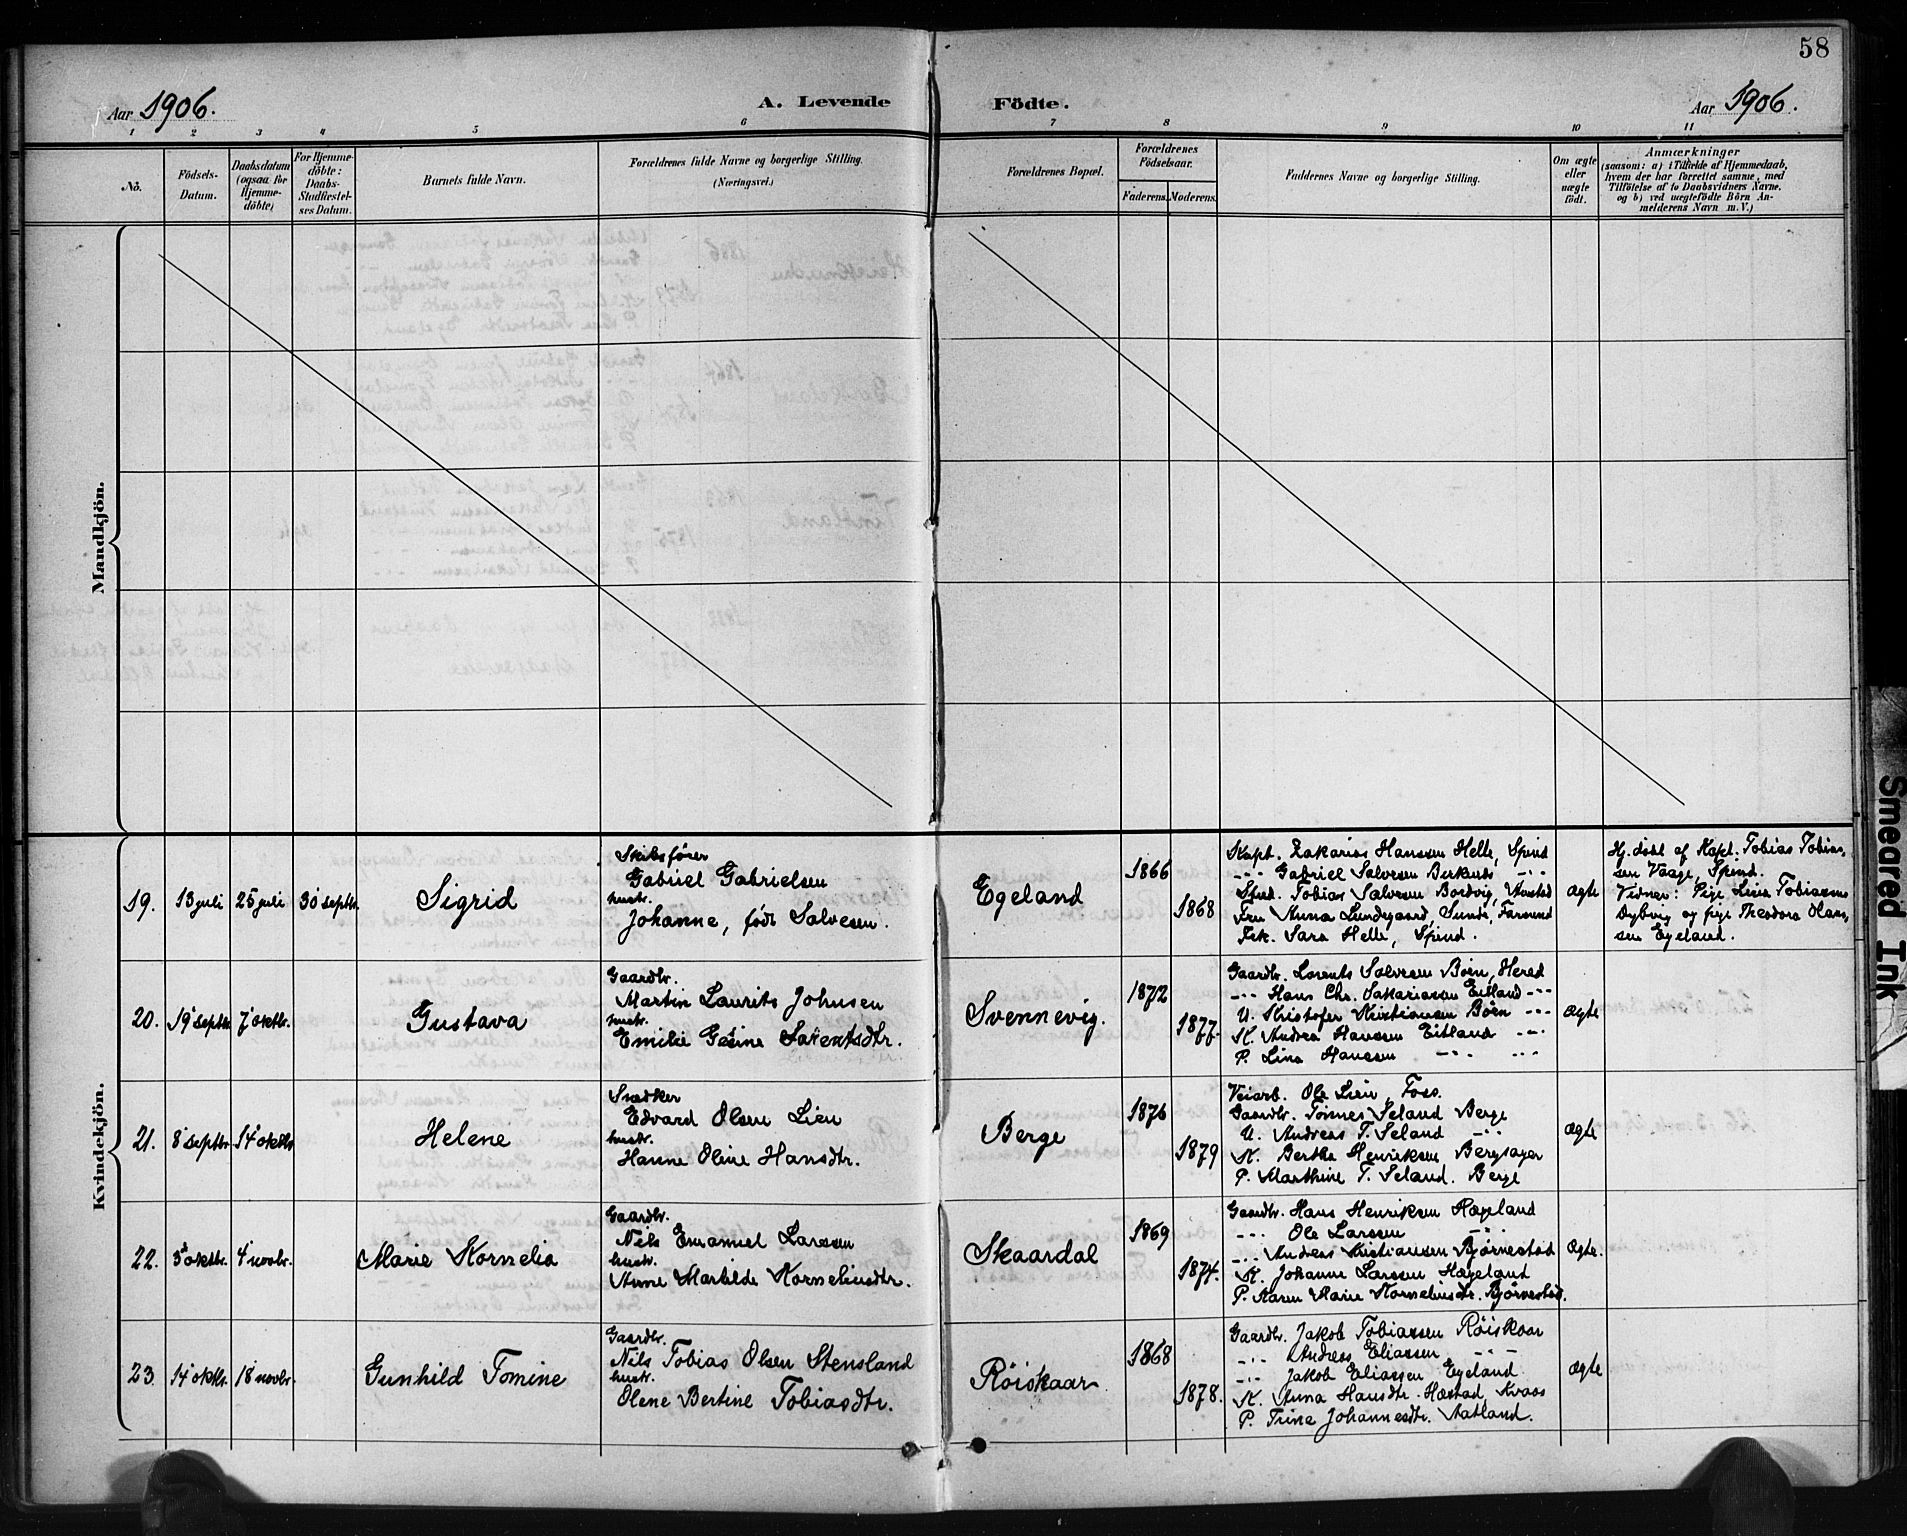 58
Aar 1906.
A. Levende Födte.
Aar 1906.
1 2 3 4 5 6 7 8 9 10 11
No.
Födsels-Datum.
Daabsdatum (ogsaa for Hjemme-döbte)
For Hjemme-döbte: Daabs-Stadfæstel-ses Datum.
Barnets fulde Navn.
Forældrenes fulde Navne og borgerlige Stilling.
(Næringsvei.)
Forældrenes Bopæl.
Forældrenes Födselsaar.
Faderens. Moderens.
Faddernes Navne og borgerlige Stilling.
Om ægte eller uægte födt.
Anmærkninger
(saasom: a) i Tilfælde af Hjemmedaab,
hvem der har forrettet samme, med
Tilföielse af to Daabsvidners Navne,
og b) ved uægtefödte Börn An-
melderens Navn m. V.)
Mandkjön.
Kvindekjön.
19. 13 juli 25 juli 30 septbr. Sigrid
Skibsfører
Gabriel Gabrielsen
hustr.
Johanne, født Salvesen.
Egeland
1866
1868
Kapt. Zakarias Hanssen Helle, Spind
-"- Gabriel Salvesen -"-
Tobias Salvesen
Fru Anna Lundegaard, Sunde, Farsund
Frk. Sara Helle, Spind.
ægte
Hj. døbt af Kapt. Tobias Tobias-
sen Vaage, Spind.
Vidner: Pige Lisa Tobiasen
Dybvig og pige Theodora Olas-
sen Egeland.
20. 19 septbr. 7 oktbr. Gustava
Gaardbr.
Martin Laurits Johnsen
hustr.
Emilie Gesine Sørensdtr.
Svennevig.
1872
1877.
Gaardbr. Lorents Salvesen Børn, Hered
-"- Hans Chr. Sakariasen Eitland -"-
U. Kristofer Kristiansen Børn -"-
K. Andrea Hansen Eitland -"-
P. Lina Hansen -"- -"-
ægte
21. 8 septbr. 14 oktbr Helene
Snedker
Edvard Olsen Lien
hustr.
Hanne Oline Hansdtr.
Berge
1876
1879
Veiarb. Ole Lien, Foss.
Gaardbr. Tønnes Seland Berge
U. Andreas T. Seland -"-
K. Berthe Henriksen Bergsager
P. Marthine T. Seland. Berge
ægte
22. 3 oktbr. 4 novbr. Marie Kornelia
Gaardbr.
Nils Emanuel Larssen
hustr.
Anne Martilde Korneliusdtr.
Skaardal
1869
1874.
Gaardbr. Hans Henriksen Hægeland
-"- Ole Larssen -"-
-"- Andreas Kristiansen Bjørnestad
K. Johanne Larssen Hægeland
P. Karen Marie Korneliusdtr. Bjørnestad.
ægte.
23. 14 oktbr. 18 novbr. Gunhild Tomine
Gaardbr.
Nils Tobias Olsen Stensland
hustr.
Olene Bertine Tobiasdtr.
Röiskaar
1868
1878.
Gaardbr. Jakob Tobiassen Röiskaar
-"- Andreas Eliassen -"-
-"- Jakob Eliassen Egeland.
K. Anna Hansdtr. Hæstad, Kvaas
P. Trine Johannesdtr. Aatland.
ægte
Smeared Ink